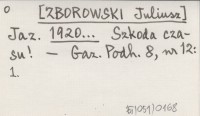 o [ZBOROWSKI Juliusz]
Jaz. 1920... Szkoda cza-
su! — Gaz. Podh. 8, nr 12:
1.